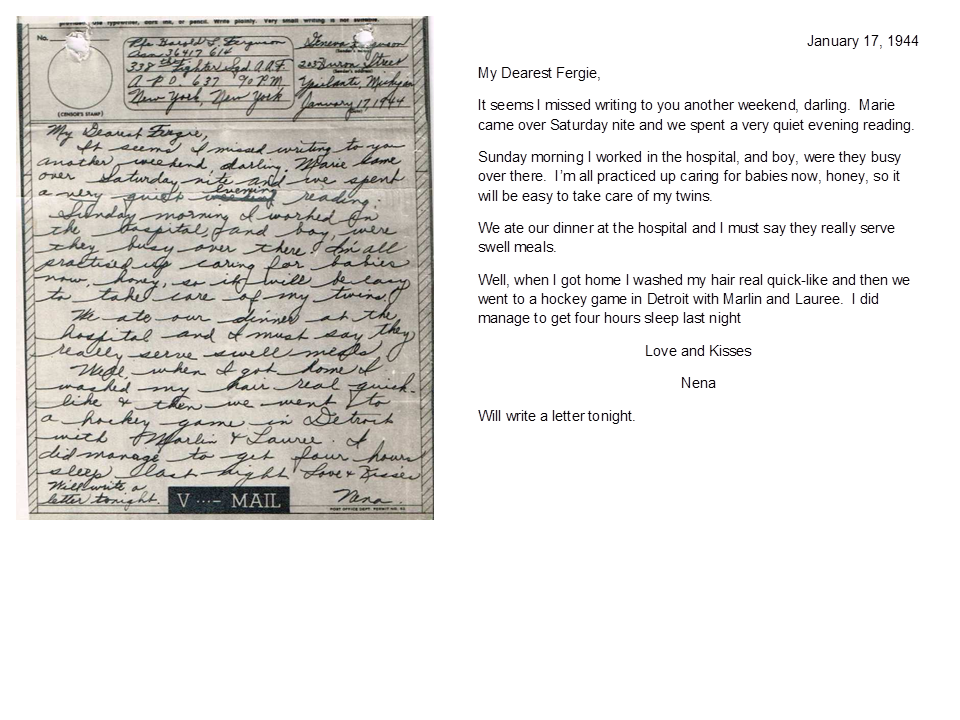 provided, the typewriter, dark ink, or pencil. Write plainly. Very small writing is not suitable.
No.
(CENSOR'S STAMP)
Pfc Harold L. Ferguson
Asn. 36417614
338th Fighter Sqd. A.A.F.
A-P.O. 637 % P.M.
New York, New York
Geneva Ferguson
(Sender's name)
203 Huron Street
(Sender's address)
Ypsilanti, Michigan
January 17, 1944
My Dearest Fergie,
It seems I missed writing to you
another weekend, darling. Marie came
over Saturday nite and we spent
a very quiet evening reading.
Sunday morning I worked in
the hospital, and boy, were
they busy over there! I'm all
practised up caring for babies
now, honey, so it will be easy
to take care of my twins.
We ate our dinner at the
hospital and I must say they
really serve swell meals.
Well, when I got home I
washed my hair real quick-
like & then we went to
a hockey game in Detroit
with Marlin & Lauree. I
did manage to get four hours
sleep last night Love & Kisses
Will write a
letter tonight.
Nena.
V ···– MAIL
POST OFFICE DEPT. PERMIT NO.
January 17, 1944
My Dearest Fergie,
It seems I missed writing to you another weekend, darling.  Marie
came over Saturday nite and we spent a very quiet evening reading.
Sunday morning I worked in the hospital, and boy, were they busy
over there.  I'm all practiced up caring for babies now, honey, so it
will be easy to take care of my twins.
We ate our dinner at the hospital and I must say they really serve
swell meals.
Well, when I got home I washed my hair real quick-like and then we
went to a hockey game in Detroit with Marlin and Lauree.  I did
manage to get four hours sleep last night
Love and Kisses
Nena
Will write a letter tonight.